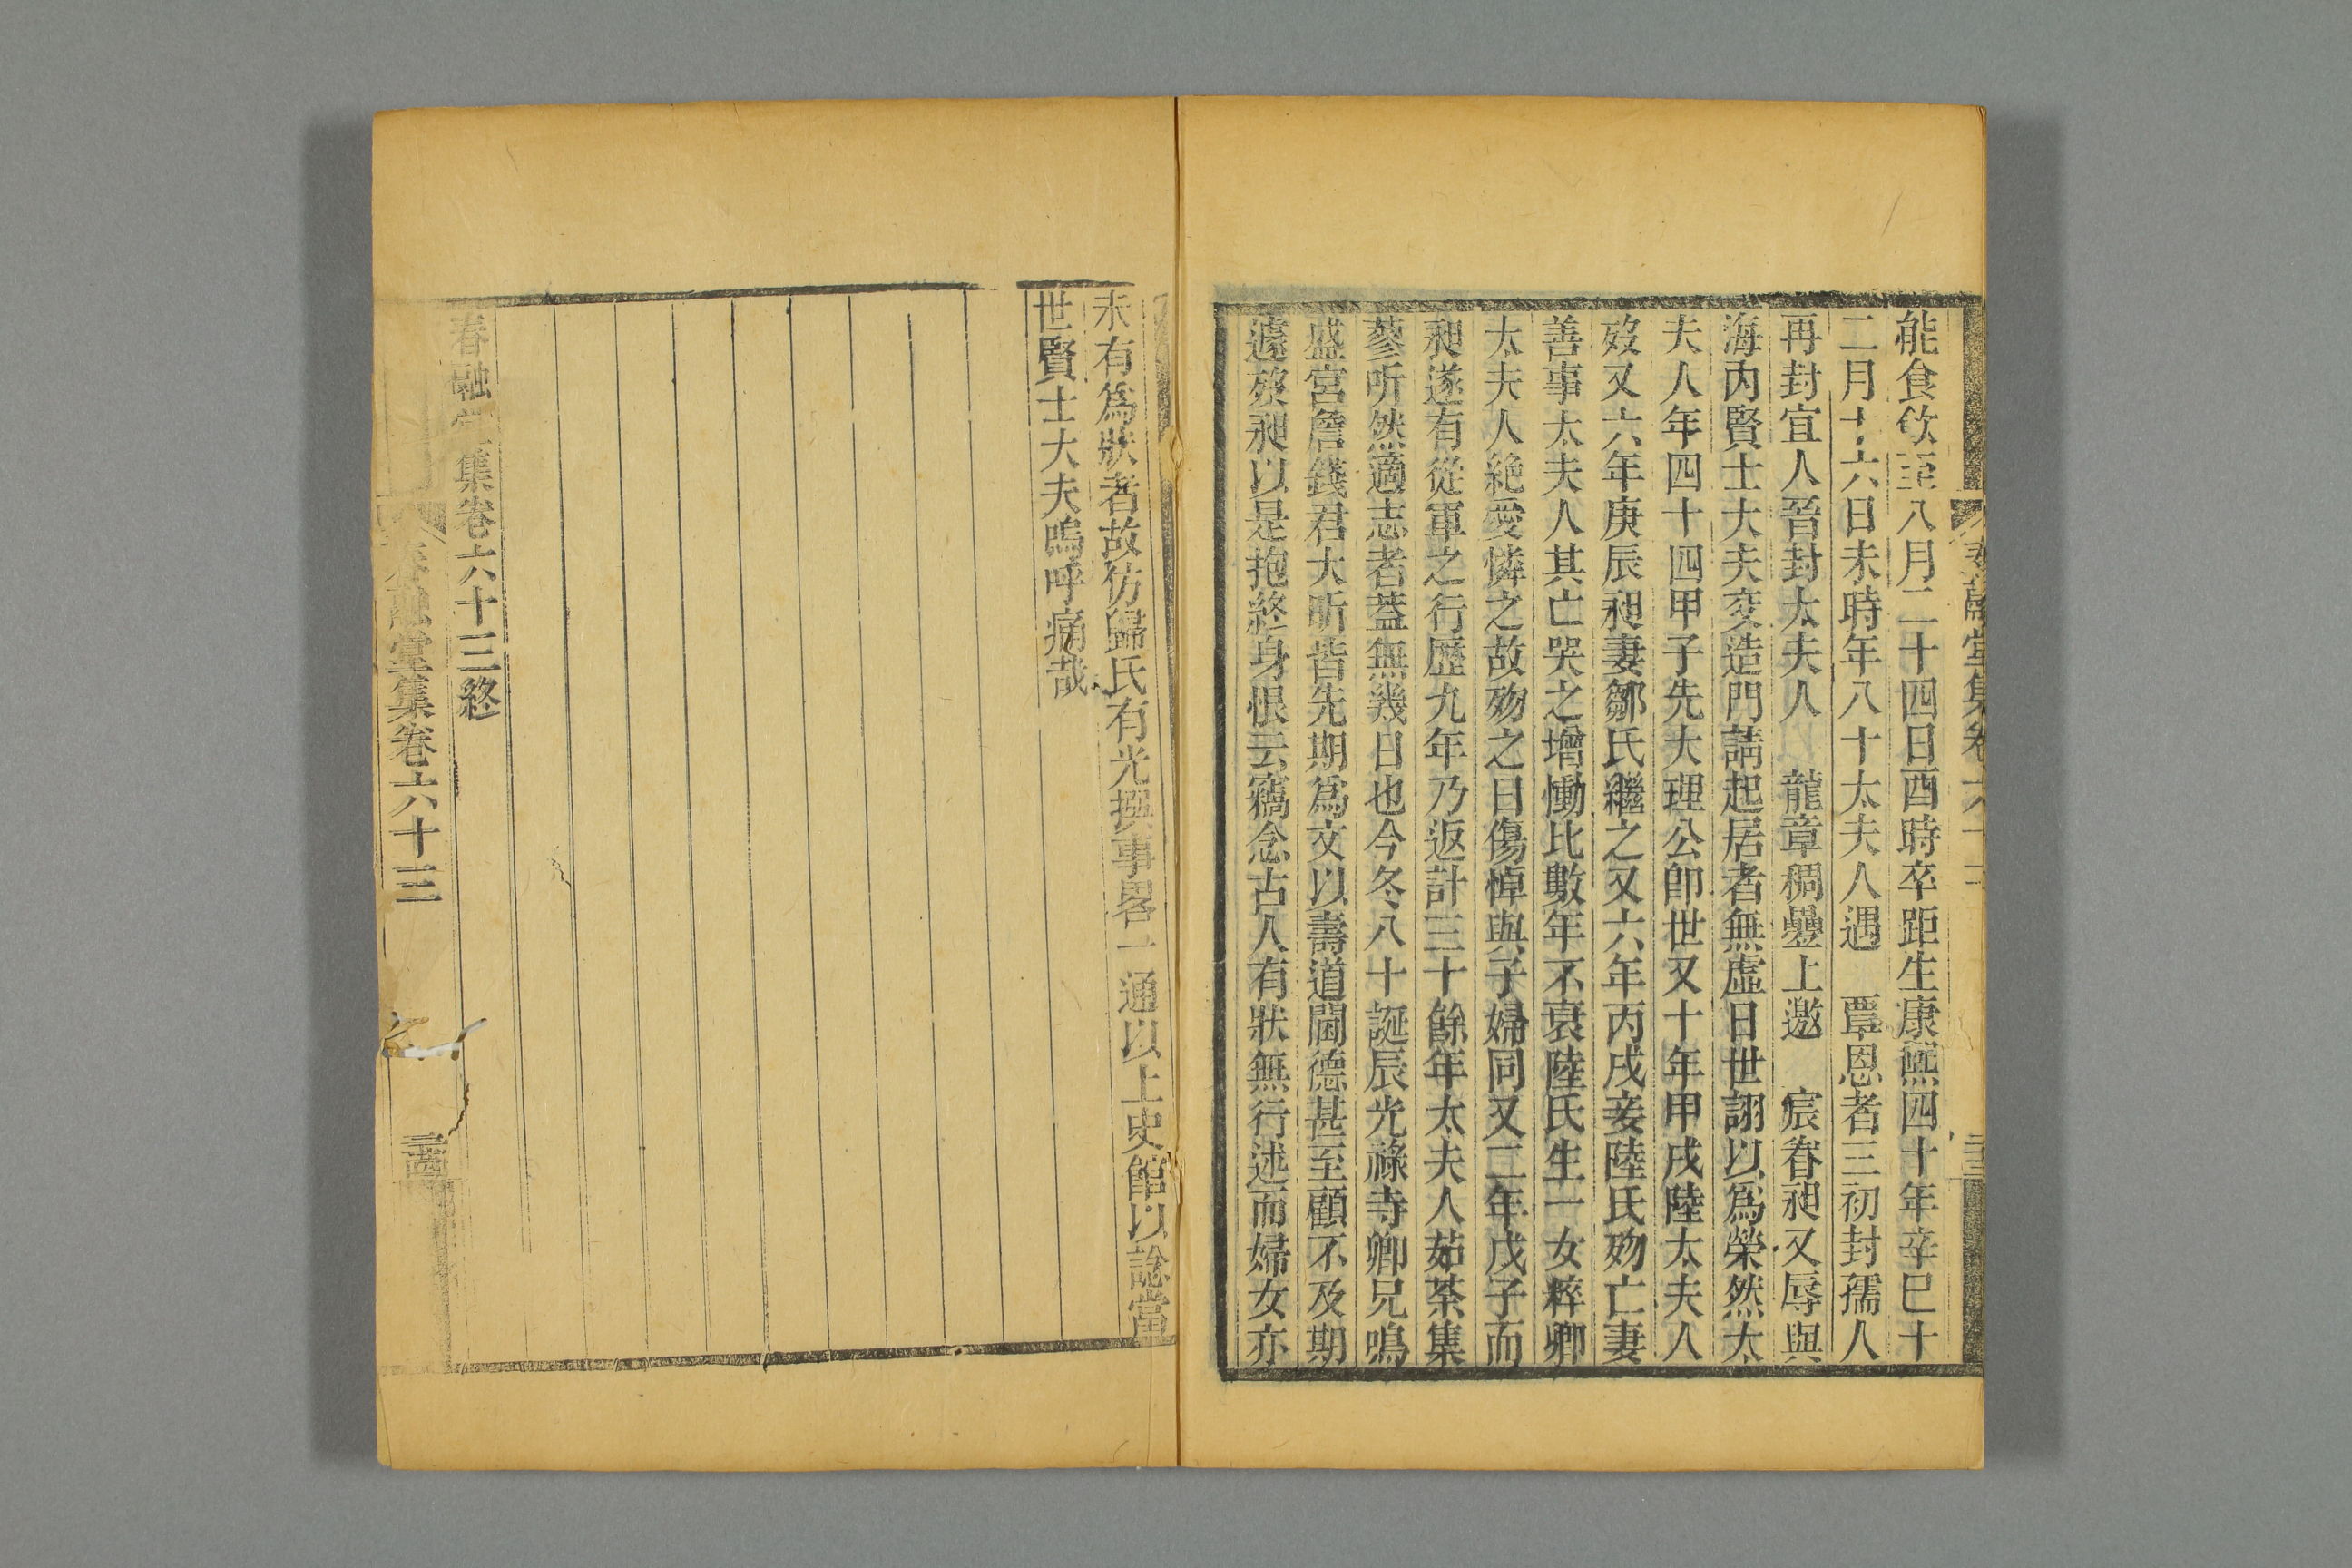 春融堂集卷六十三
能食飲至八月二十四日酉時卒距生康熙四十年辛巳十
二月十六日未時年八十太夫人遇 覃恩者三初封孺人
再封宜人晉封太夫人 龍章稠疊上邀 宸眷昶又辱與
海內賢士大夫交造門請起居者無虛日世詡以為榮然太
夫人年四十四甲子先大理公卽世又十年甲戌陸太夫人
歿又六年庚辰昶妻鄒氏繼之又六年丙戌妾陸氏歾亡妻
善事太夫人其亡哭之增慟比數年不衰陸氏生一女粹卿
太夫人絶愛憐之故歾之日傷悼與子婦同又二年戊子而
昶遂有從軍之行歷九年乃返計三十餘年太夫人茹荼集
蓼听然適志者葢無幾日也今冬八十誕辰光祿寺卿兄鳴
盛宮詹錢君大昕皆先期為文以壽道閫德甚至顧不及期
遽歿昶以是抱終身恨云竊念古人有狀無行述而婦女亦
未有為狀者故仿歸氏有光撰事畧一通以上史館以諗當
世賢士大夫嗚呼痛哉
春融堂集卷六十三終
春融堂集卷六十三